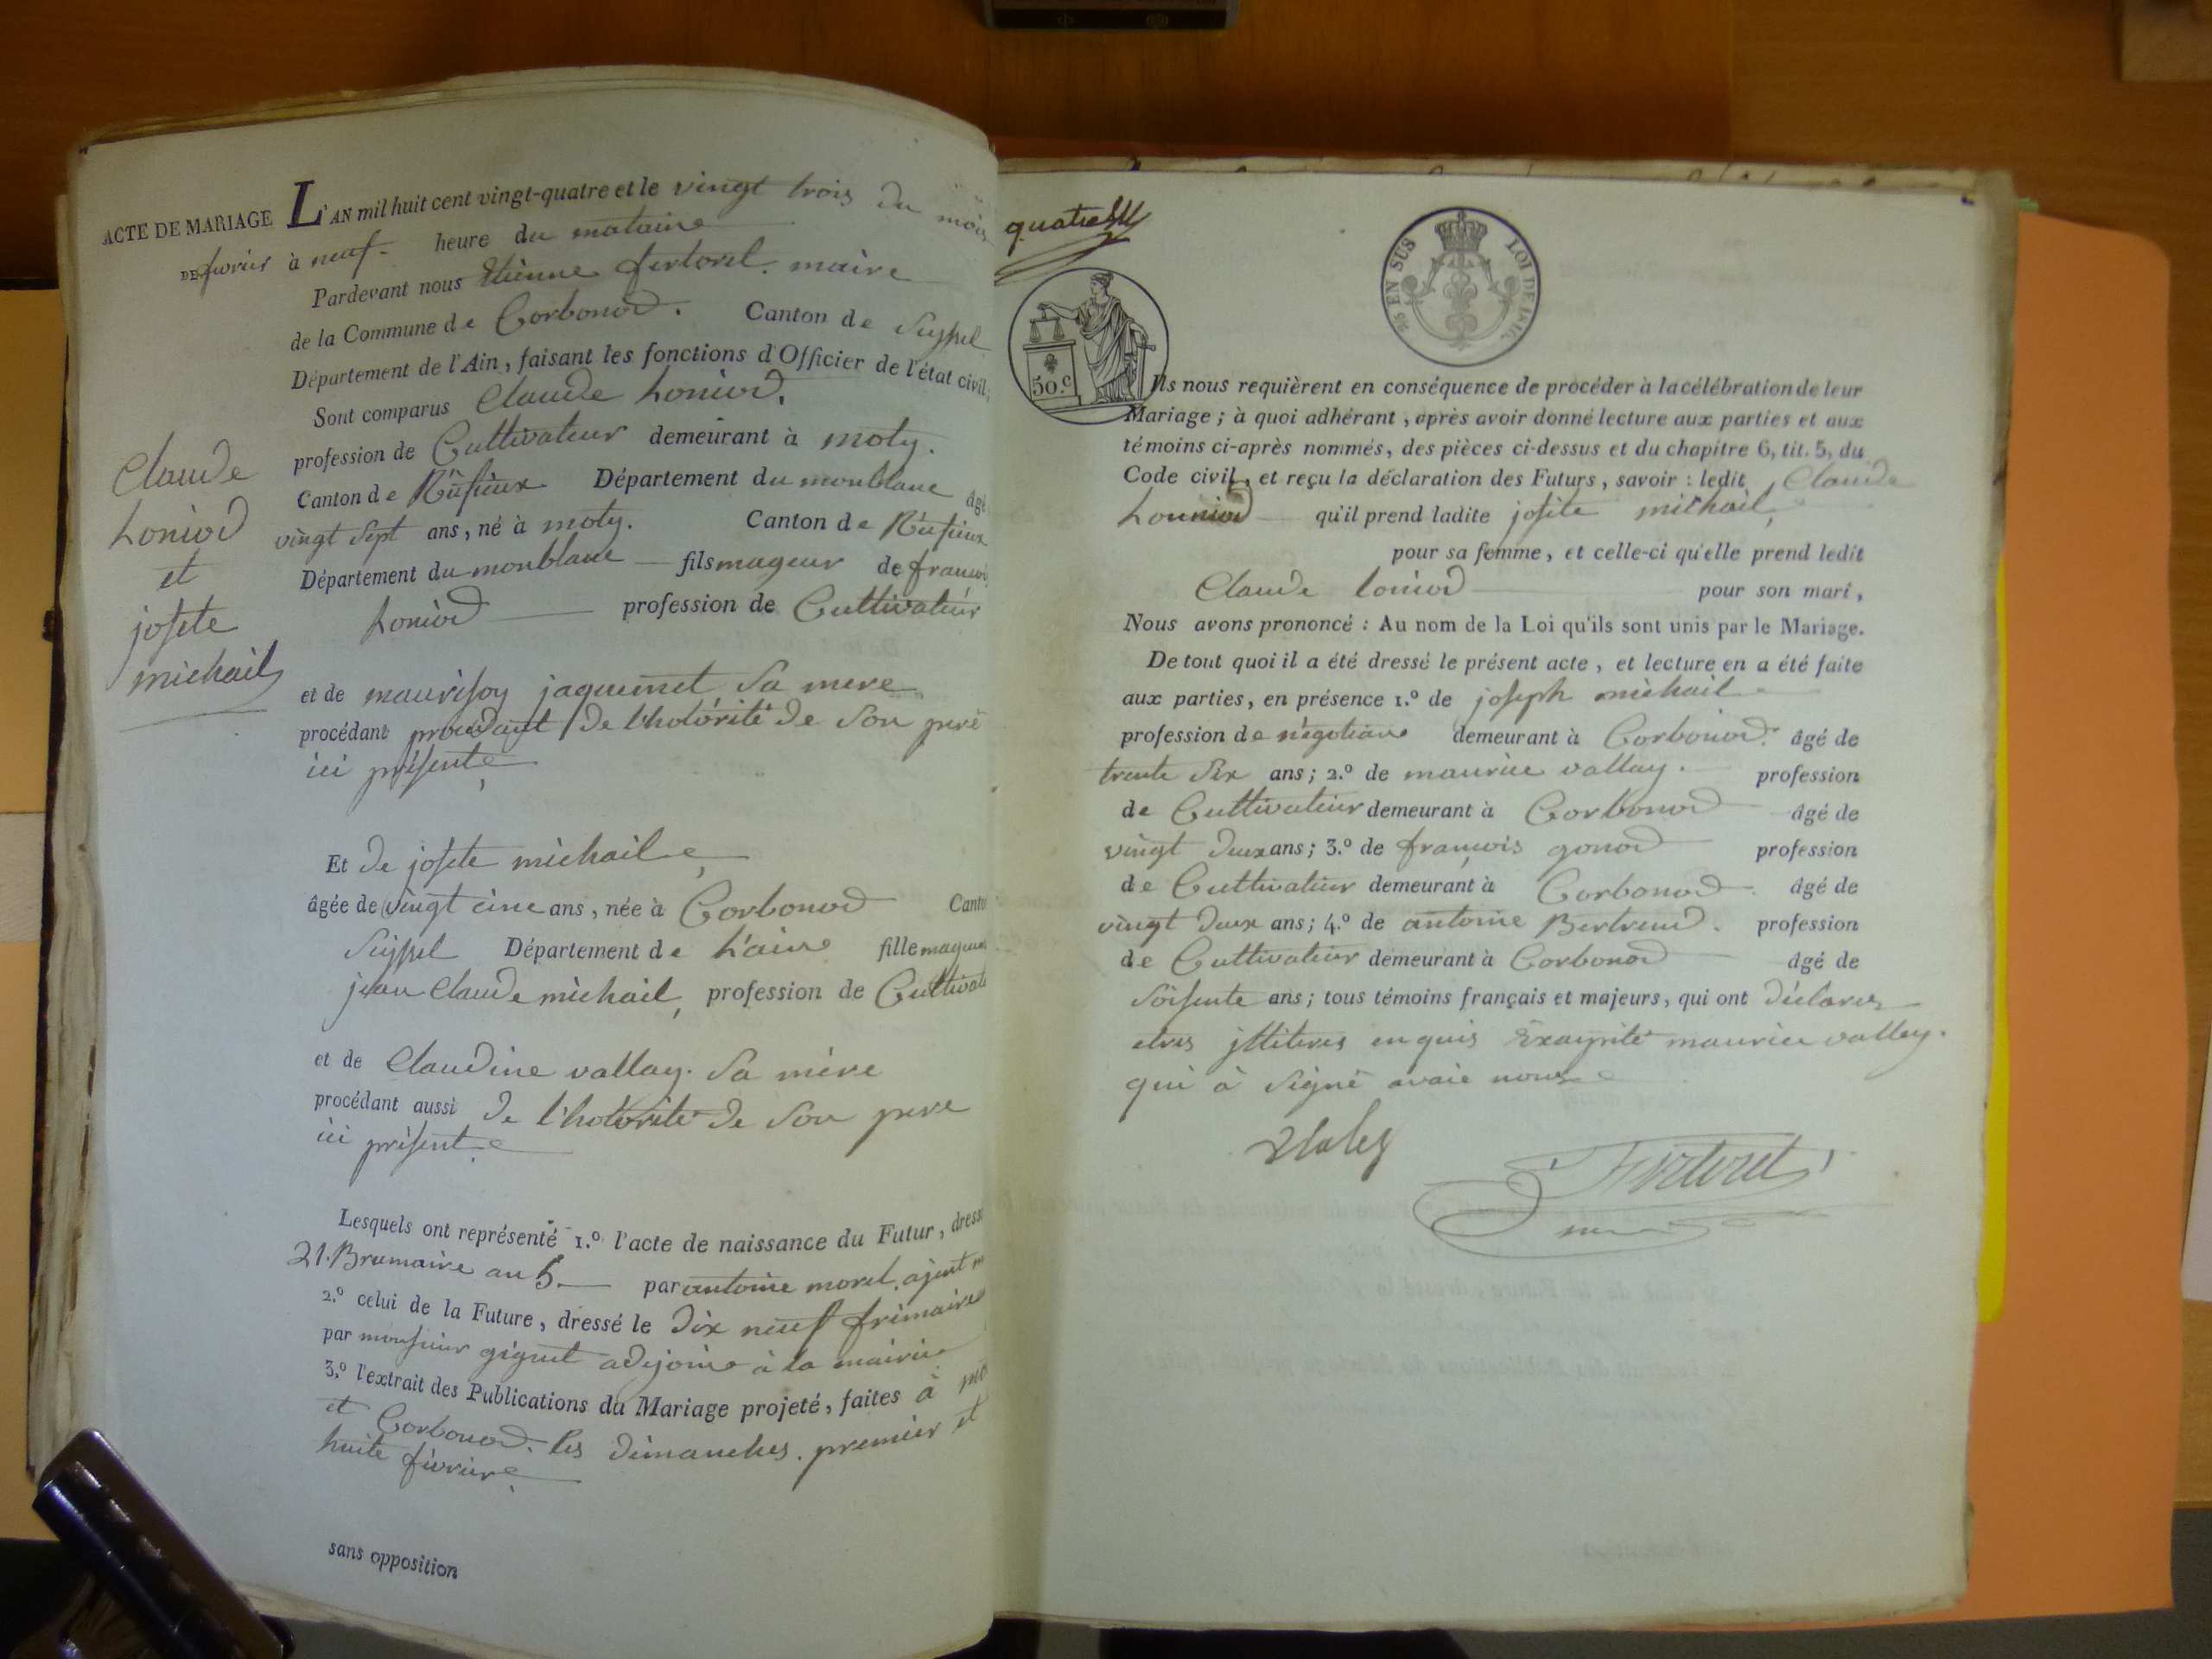 ACTE DE MARIAGE
Claude
Loniod
et
josete
michail
L'AN mil huit cent vingt-quatre et le vingt trois du mois
DE fevrier à neuf heure du mataine
Pardevant nous Etienne fertoret maire
de la Commune de Corbonod. Canton de Seyssel
Département de l'Ain, faisant les fonctions d'Officier de l'état civil;
Sont comparus Claude Loniod,
profession de Cultivateur demeurant à moty.
Canton de Rufieux Département du monblanc âgé
vingt sept ans, né à moty. Canton de Rufieux
Département du monblanc fils mageur de francois
Loniod profession de Cultivateur
et de maurisoy jaquemet Sa mere
procédant procedant de l'hotorité de Son pere
ici présente
Et de josete michaile
âgée de vingt cinc ans, née à Corbonod Canto
Seyssel Département de L'aine fille mageure
jean Claude michail, profession de Cultivate
et de Claudine vallay. Sa mére
procédant aussi de l'hotorité de Son pere
ici présente
Lesquels ont représenté 1.º l'acte de naissance du Futur, dressé
21. Brumaire an 5. par antoine morel. ajent m
2.º celui de la Future, dressé le dix neuf frimaire
par monsieur giguet adejoins à la mairie
3.º l'extrait des Publications du Mariage projeté, faites à mo
et Corbonod. les dimanches. premier et
huite fevriere
sans opposition
quatre
50.c
EN SUS LOI DE
Ils nous requièrent en conséquence de procéder à la célébration de leur
Mariage; à quoi adhérant, après avoir donné lecture aux parties et aux
témoins ci-après nommés, des pièces ci-dessus et du chapitre 6, tit. 5, du
Code civil, et reçu la déclaration des Futurs, savoir: ledit Claude
Louniod qu'il prend ladite josite michail,
pour sa femme, et celle-ci qu'elle prend ledit
Claude loniod pour son mari,
Nous avons prononcé: Au nom de la Loi qu'ils sont unis par le Mariage.
De tout quoi il a été dressé le présent acte, et lecture en a été faite
aux parties, en présence 1.º de joseph michail
profession de négotians demeurant à Corbonod. âgé de
trente Six ans; 2.º de maurice vallay. profession
de Cultivateur demeurant à Corbonod âgé de
vingt deux ans; 3.º de françois gonod profession
de Cultivateur demeurant à Corbonod âgé de
vingt deux ans; 4.º de antoine Bertrend. profession
de Cultivateur demeurant à Corbonod âgé de
Soisente ans; tous témoins français et majeurs, qui ont déclarez
etres jllitires enquis Exaypité maurice vallay.
qui à Signé avaic nous
Fertoret